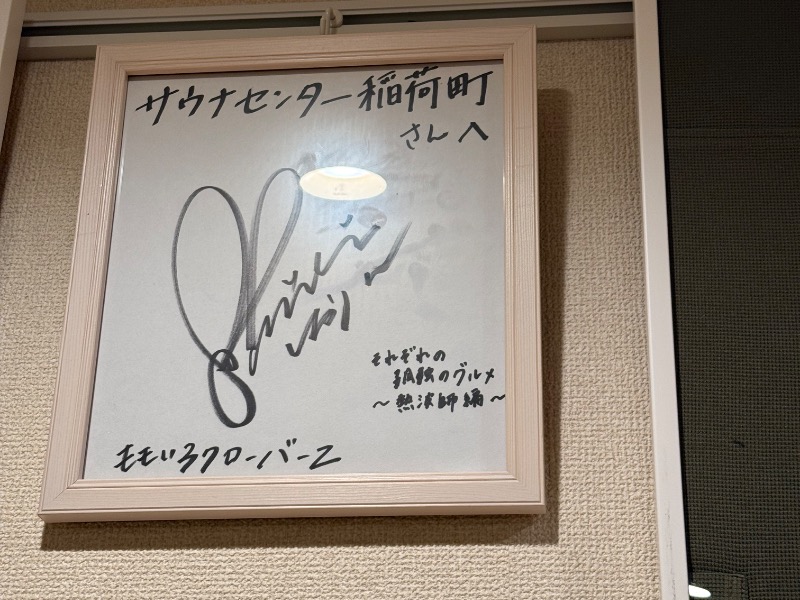 サウナセンター稲荷町
さんへ
それぞれの
孤独のグルメ
～熱波師編～
ももいろクローバーZ